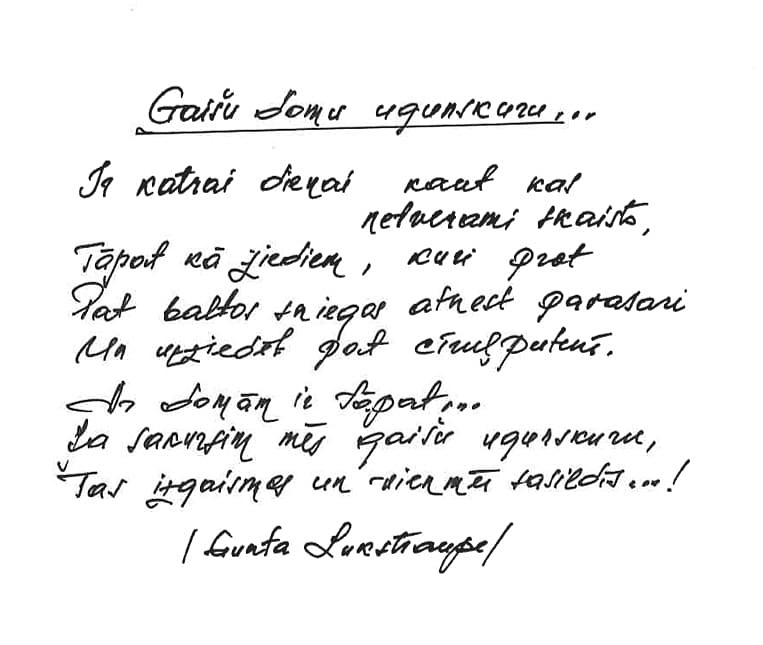 Gaišu domu ugunskuru...
Ir katrai dienai kaut kas
netverami skaists,
Tāpat kā ziediem, kuri prot
Pat baltos sniegos atnest pavasari
Un uzziedēt pat cīruļputenī.
Ar domām ir tāpat...
Ja sakursim mēs gaišu ugunskuru,
Tas izgaismos un vienmēr sasildīs...!
/Gunta Lukstraupe/